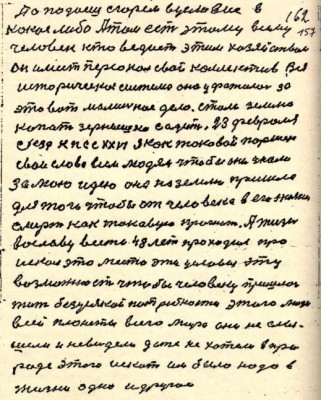 До подошл сгорел в условие в 162
какое либо А там ест этому всему 157
человек кто ведает этим хозяйством
он имеет персонал свой коллектив Вся
историческая система она ухватилас за
это вот маленькое дело. стала землю
копать зернышко садит. 23 февраля
сьезд КПСС XXVI Я как таковой
свои слова всем людям чтобы они знали
За мою идею она на землю пришла
для того чтобы от человека в его жизни
смерт как таковую прогнат. А жизн
во славу ввести 48 лет проходил про
искал это место эти условия эту
возможност чтобы человеку пришлос
жит без всякой потребности этого люди
всей планеты всего мира они не слы-
шели и невидели даже не хотели в при
роде этого искат им было надо в
жизни одно и другое